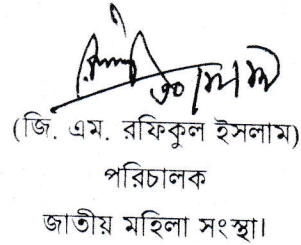 (জি. এম. রফিকুল ইসলাম)
পরিচালক
জাতীয় মহিলা সংস্থা।